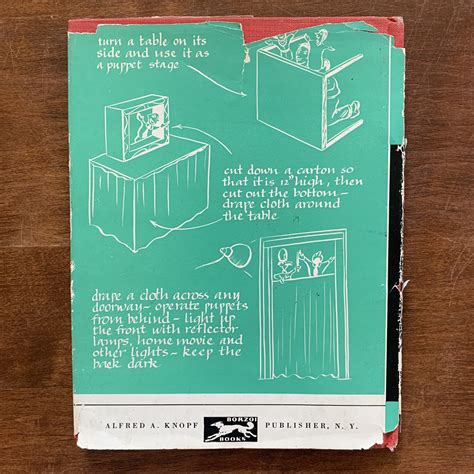 turn a table on its
side and use it as
a puppet stage
cut down a carton so
that it is 12" high, then
cut out the bottom –
drape cloth around
the table
drape a cloth across any
doorway – operate puppets
from behind – light up
the front with reflector
lamps, home movie and
other lights – keep the
back dark
ALFRED A. KNOPF
BORZOI
BOOKS
PUBLISHER, N. Y.